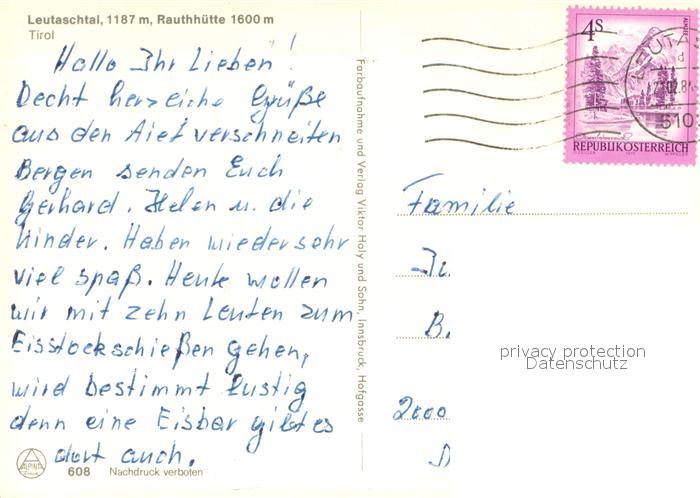 Leutaschtal, 1187 m, Rauthhütte 1600 m
Tirol
Hallo Ihr Lieben!
Decht herzeiche Grüße
aus den tief verschneiten
Bergen senden Euch
Gerhard. Helen u. die
Kinder. Haben wieder sehr
viel spaß. Heute wollen
wir mit zehn Leuten zum
Eisstockschießen gehen,
wird bestimmt lustig
denn eine Eisbar gibt es
dort auch.
ALPINA
608 Nachdruck verboten
Farbaufnahme und Verlag Viktor Holy und Sohn, Innsbruck, Hofgasse
4S
ALMSEE
REPUBLIK ÖSTERREICH
6105
Familie
B.
2000
privacy protection
Datenschutz